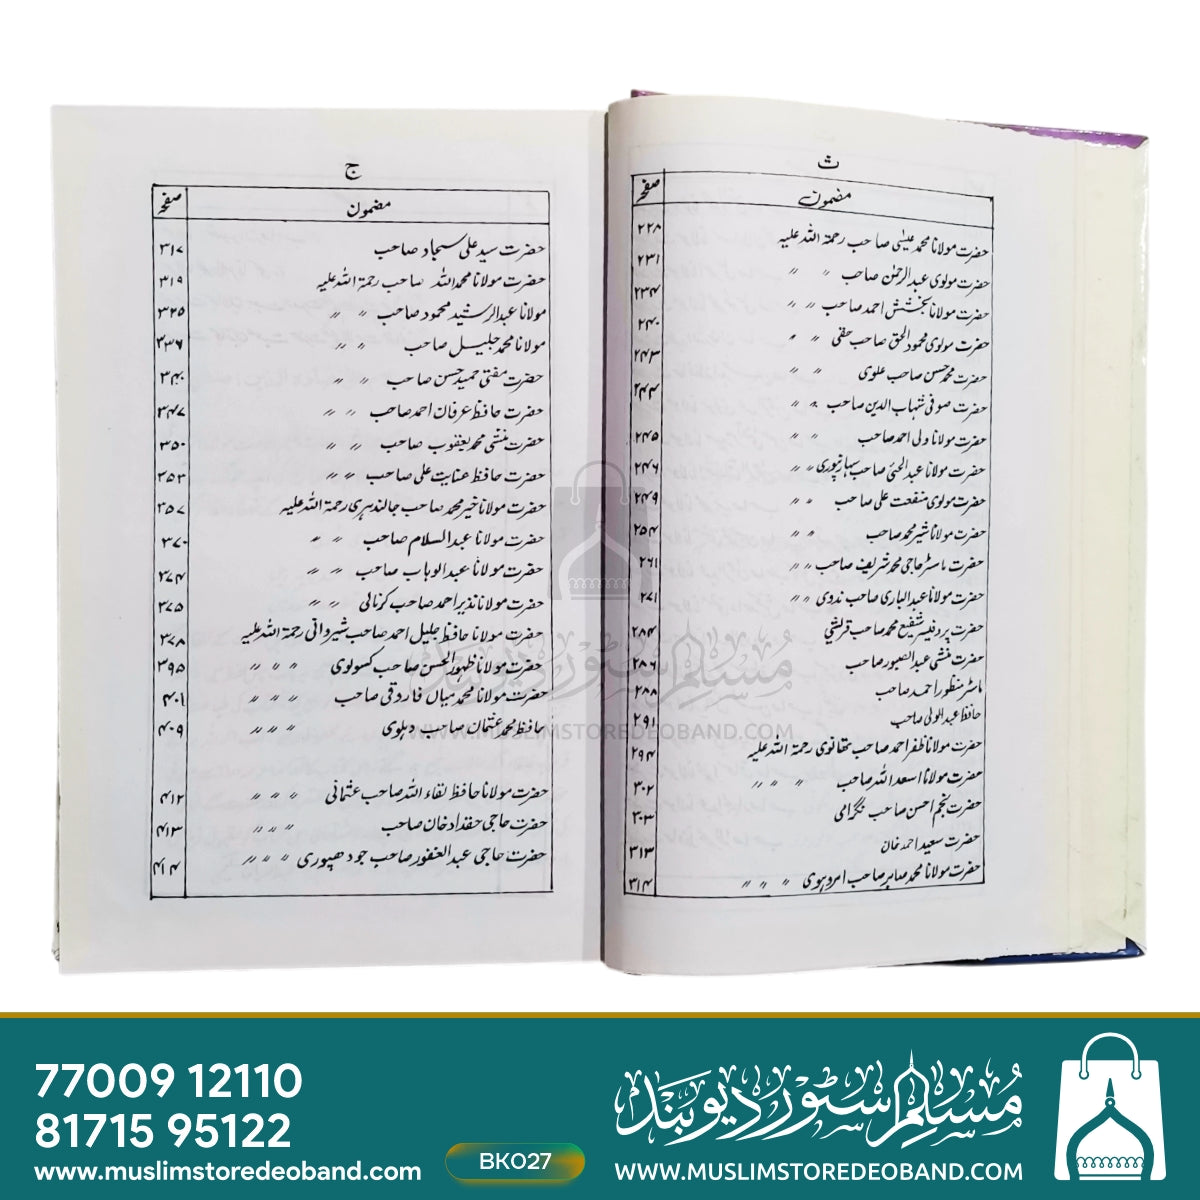 ث
مضمون صفحہ
حضرت مولانا محمد عیسٰی صاحب رحمۃ اللہ علیہ ۲۲۸
حضرت مولوی عبدالرحمٰن صاحب " " ۲۳۱
حضرت مولانا بخشش احمد صاحب " " ۲۳۴
حضرت مولوی محمود الحق صاحب حقی " " ۲۴۰
حضرت محمد حسن صاحب علوی " " ۲۴۳
حضرت صوفی شہاب الدین صاحب " " ۲۴۴
حضرت مولانا ولی احمد صاحب " " ۲۴۵
حضرت مولانا عبدالحئی صاحب سہارنپوری " " ۲۴۶
حضرت مولوی منفعت علی صاحب " " ۲۴۹
حضرت مولانا شیر محمد صاحب " " ۲۵۴
حضرت ماسٹر حاجی محمد شریف صاحب " " ۲۶۱
حضرت مولانا عبدالباری صاحب ندوی " " ۲۷۱
حضرت پروفیسر شفیع محمد صاحب قریشی ۲۸۴
حضرت منشی عبدالصبور صاحب ۲۸۶
ماسٹر منظور احمد صاحب ۲۸۸
حافظ عبدالولی صاحب ۲۹۱
حضرت مولانا ظفر احمد صاحب تھانوی رحمۃ اللہ علیہ ۲۹۴
حضرت مولانا اسعد اللہ صاحب " " " ۳۰۲
حضرت نجم احسن صاحب نگرامی ۳۰۳
حضرت سعید احمد خان ۳۱۳
حضرت مولانا محمد صابر صاحب امروہوی " " " ۳۱۴
ج
مضمون صفحہ
حضرت سید علی سجاد صاحب ۳۱۷
حضرت مولانا محمد اللہ صاحب رحمۃ اللہ علیہ ۳۱۹
مولانا عبدالرشید محمود صاحب " " ۳۲۵
مولانا محمد جلیل صاحب " " ۳۳۶
حضرت مفتی حمید حسن صاحب " " ۳۴۰
حضرت حافظ عرفان احمد صاحب " " ۳۴۷
حضرت منشی محمد یعقوب صاحب " " ۳۵۰
حضرت حافظ عنایت علی صاحب " " ۳۵۳
حضرت مولانا خیر محمد صاحب جالندہری رحمۃ اللہ علیہ ۳۵۷
حضرت مولانا عبدالسلام صاحب " " ۳۷۰
حضرت مولانا عبدالوہاب صاحب " " ۳۷۴
حضرت مولانا نذیر احمد صاحب کرنالی " " ۳۷۵
حضرت مولانا حافظ جلیل احمد صاحب شیروانی رحمۃ اللہ علیہ ۳۷۸
حضرت مولانا ظہور الحسن صاحب کسولوی " " " ۳۹۵
حضرت مولانا محمد میاں فاروقی صاحب " " " ۴۰۱
حافظ محمد عثمان صاحب دہلوی " " " ۴۰۹
حضرت مولانا حافظ لقاء اللہ صاحب عثمانی " " " ۴۱۲
حضرت حاجی حقداد خان صاحب " " " ۴۱۳
حضرت حاجی عبدالغفور صاحب جودھپوری " " " ۴۱۴
مسلم سٹور دیوبند
WWW.MUSLIMSTOREDEOBAND.COM
77009 12110
81715 95122
www.muslimstoredeoband.com
BK027
مسلم سٹور دیوبند
WWW.MUSLIMSTOREDEOBAND.COM